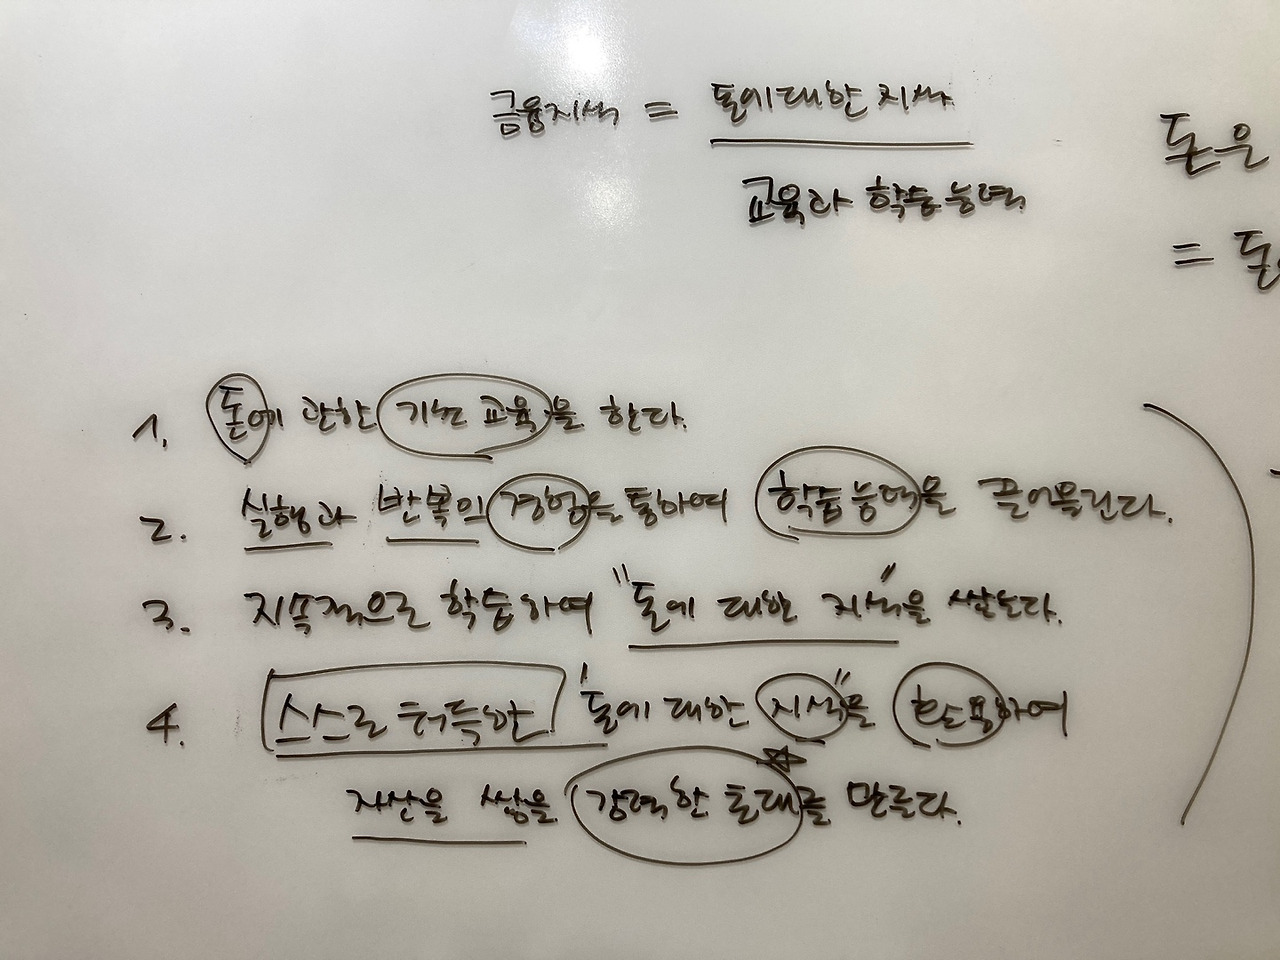 금융지식 = 돈에 대한 지식
교육과 학습능력
돈은
= 돈
1. 돈에 관한 기본 교육을 한다.
2. 실행과 반복의 경험을 통하여 학습능력을 끌어올린다.
3. 지속적으로 학습하여 "돈에 대한 지식"을 쌓는다.
4. 스스로 터득한 "돈에 대한 지식"을 활용하여
자산을 쌓을 강력한 토대를 만든다.